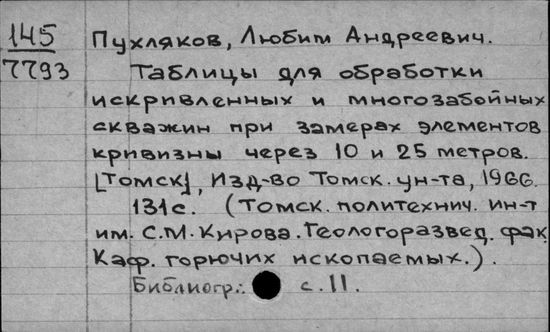 145 Пухляков, Любим Андреевич.
7793 Таблицы для обработки
искривленных и многозабойных
скважин при замерах элементов
кривизны через 10 и 25 метров.
[Томск], Изд-во Томск. ун-та, 1966.
131 с. (Томск. политехнич. ин-т
им. С.М. Кирова. Геологоразвед. фак.
Каф. горючих ископаемых.).
Библиогр.: с. 11.